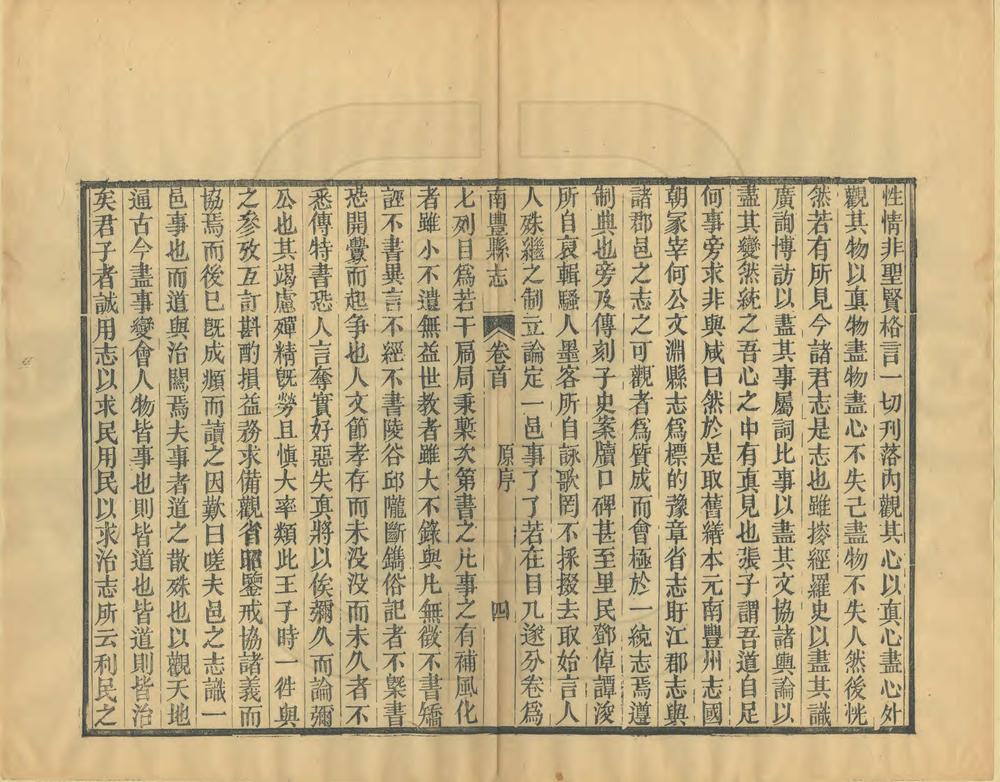 性情非聖賢格言一切刋落內觀其心以真心盡心外
觀其物以真物盡物盡心不失己盡物不失人然後恍
然若有所見今諸君志是志也雖摉經羅史以盡其識
廣詢博訪以盡其事屬詞比事以盡其文協諸輿論以
盡其變然統之吾心之中有真見也張子謂吾道自足
何事旁求非與咸曰然於是取舊繕本元南豐州志國
朝冢宰何公文淵縣志爲標的豫章省志盱江郡志與
諸郡邑之志之可觀者爲質成而會極於一統志焉遵
制典也旁及傳刻子史案牘口碑甚至里民鄧倬譚浚
所自裒輯騷人墨客所自詠歌罔不採掇去取始言人
人殊繼之制立論定一邑事了了若在目兀遂分卷爲
南豐縣志
卷首
原序
四
七列目爲若干扄局秉槧次第書之凡事之有補風化
者雖小不遺無益世教者雖大不錄與凡無徵不書矯
誣不書異言不經不書陵谷邱隴斷鐫俗記者不槩書
恐開釁而起争也人文節孝存而未没没而未久者不
悉傳特書恐人言奪實好惡失真將以俟彌久而論彌
公也其竭慮殫精旣勞且慎大率類此王子時一徃與
之參攷互訂斟酌損益務求備觀省昭鑒戒協諸義而
協焉而後已旣成頫而讀之因歎曰嗟夫邑之志識一
邑事也而道與治關焉夫事者道之散殊也以觀天地
通古今盡事變會人物皆事也則皆道也皆道則皆治
矣君子者誠用志以求民用民以求治志所云利民之